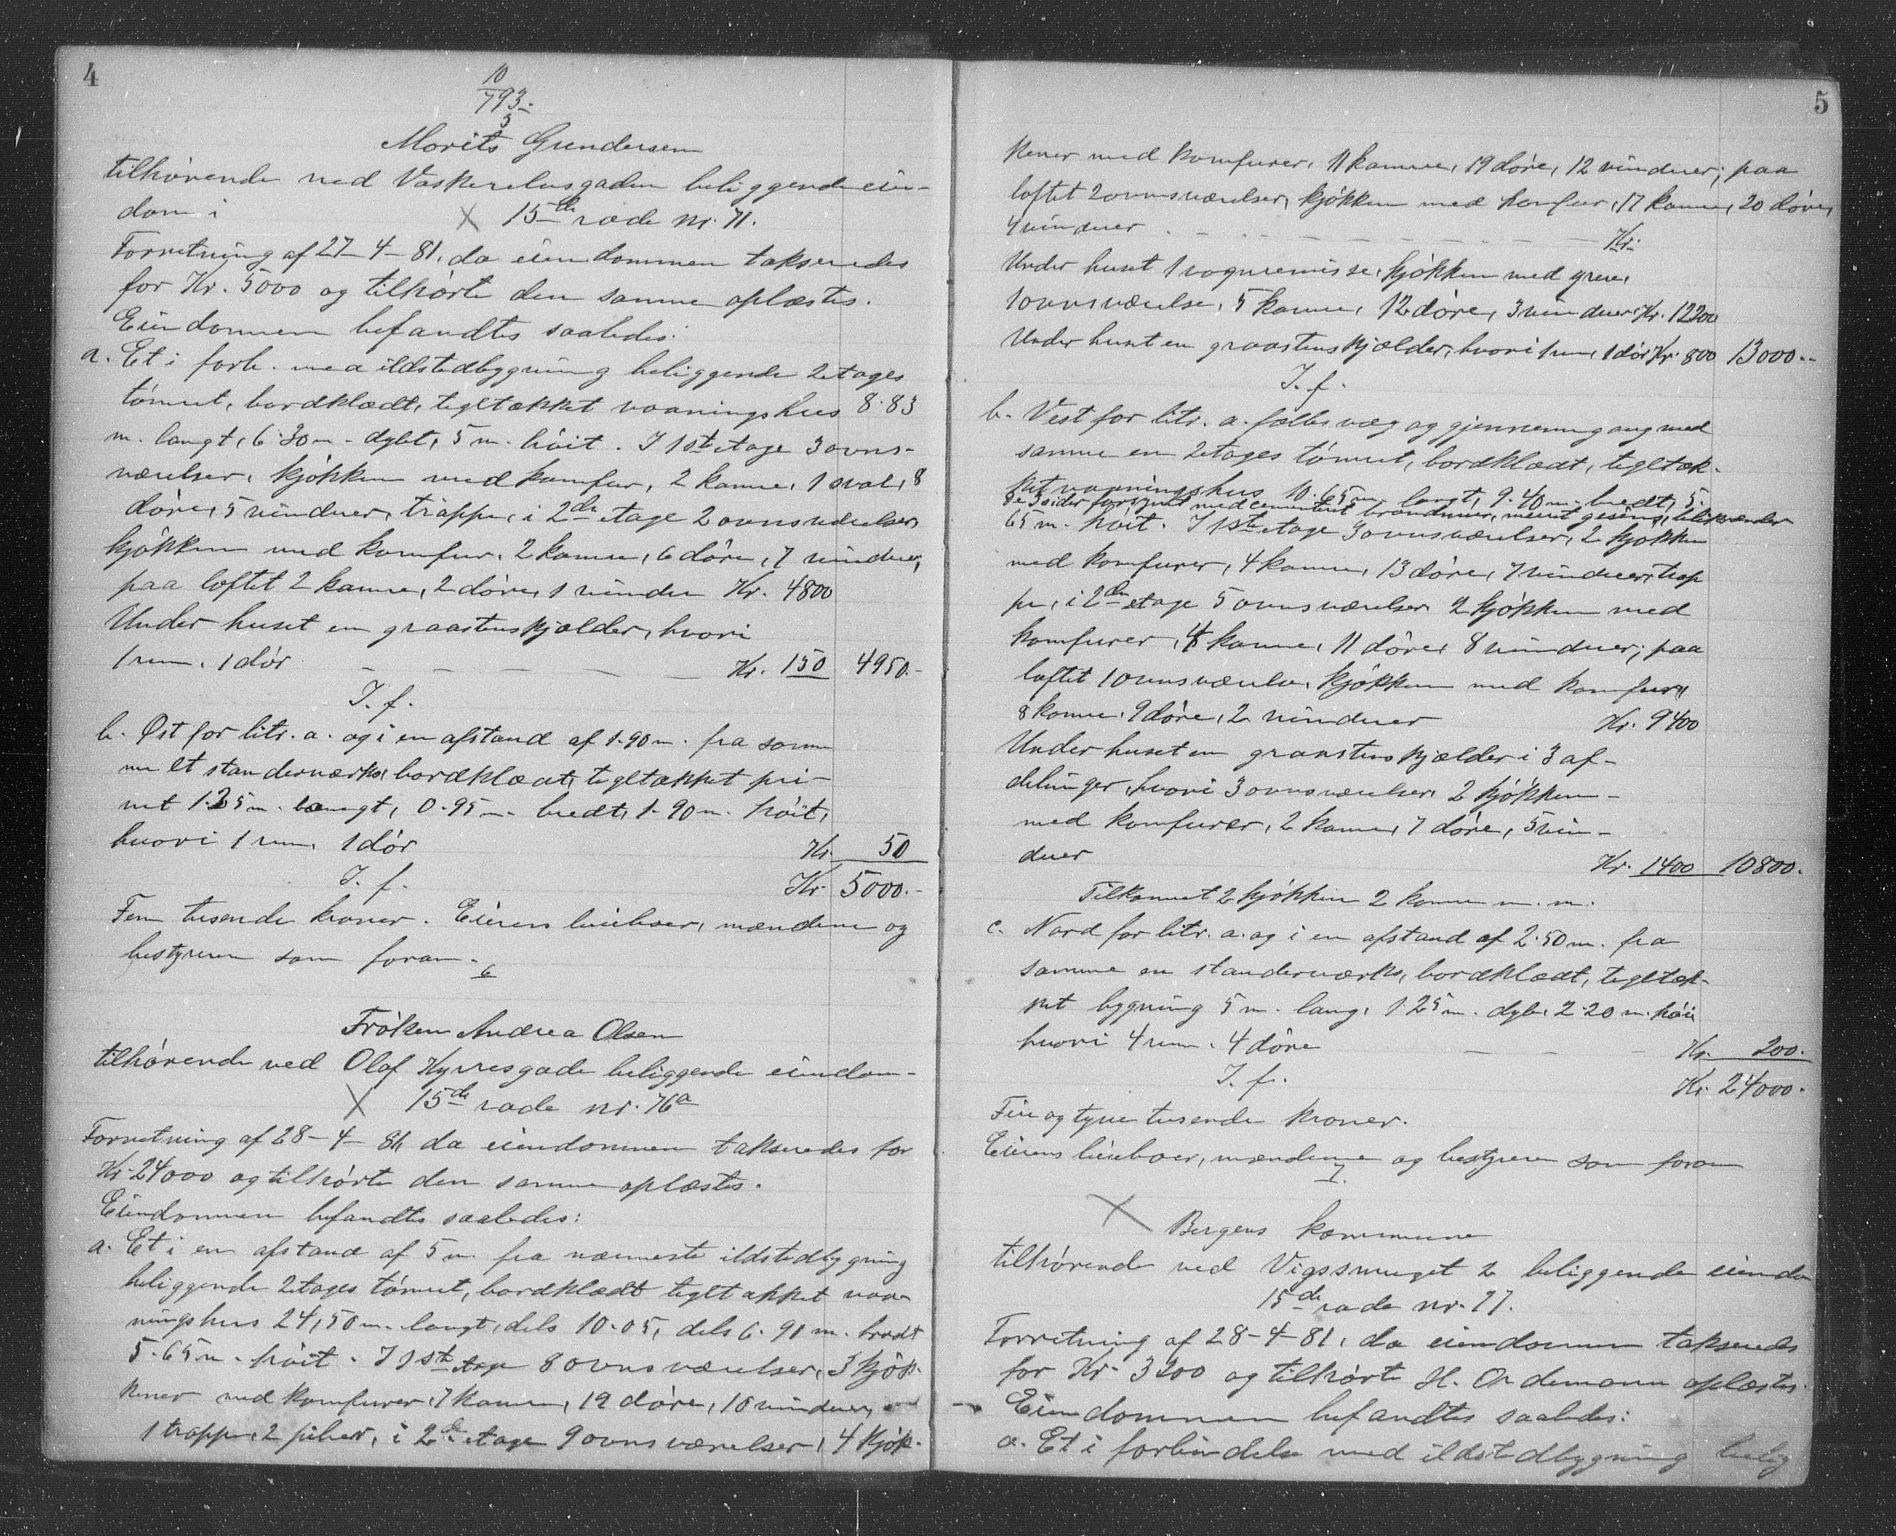 4
10
793.
5
Morits Gundersen
tilhørende ved Vaskerelvsgaden beliggende eien-
dom i
15de rode nr. 71.
Forretning af 27-4-81, da eiendommen takseredes
for Kr. 5000 og tilhørte den samme oplæstes.
Eiendommen befandtes saaledes:
a. Et i forb. med ildstedbygning beliggende 2etages
tømret, bordklædt, tegltækket vaaningshus 8.83
m. langt, 6.30 m. dybt, 5 m. høit. I 1ste etage 3 ovns-
værelser, kjøkken med komfur, 2 kamre, 1 sval, 8
døre, 5 vinduer, trappe, i 2den etage 2 ovnsværelser,
kjøkken med komfur, 2 kamre, 6 døre, 7 vinduer,
paa loftet 2 kamre, 2 døre, 1 vindu Kr. 4800
Under huset en graastenskjælder, hvori
1 rum, 1 dør - - - - Kr. 150 4950.-
T. f.
b. Øst for litr. a. og i en afstand af 1.90 m. fra sam-
me et standerværks, bordklædt, tegltækket pri-
vet 1.25 m. langt, 0.95 m. bredt, 1.90 m. høit,
hvori 1 rum, 1 dør Kr. 50
T. f. Kr. 5000.-
Fem tusende kroner. Eieren beiboer, mændene og
bestyreren som foran.
6
Frøken Andrea Olsen
tilhørende ved Olaf Kyrresgade beliggende eiendom-
15de rode nr. 76a
Forretning af 28-4-81, da eiendommen takseredes for
Kr. 24000 og tilhørte den samme oplæstes.
Eiendommen befandtes saaledes:
a. Et i en afstand af 5 m. fra nærmeste ildstedbygning
beliggende 2etages tømret, bordklædt tegltækket vaa-
ningshus 24,50 m. langt, dels 10.05, dels 6.91 m. bredt
5.65 m. høit. I 1ste etage 8 ovnsværelser, 3 kjøk-
kener med komfurer, 7 kamre, 19 døre, 16 vinduer,
1 trappe, 2 piber, i 2den etage 9 ovnsværelser, 4 kjøk-
5
kener med komfurer, 11 kamre, 19 døre, 12 vinduer; paa
loftet 2 ovnsværelser, kjøkken med komfur, 17 kamre, 20 døre,
4 vinduer - - - - - Kr.
Under huset 1 vognremisse, kjøkken med grue,
1 ovnsværelse, 5 kamre, 12 døre, 3 vinduer Kr. 12200
Under huset en graastenskjælder, hvori 1 rum, 1 dør Kr. 800 13000.-
T. f.
b. Vest for litr. a. fælles væg og gjennemgang med
samme en 2etages tømret, bordklædt, tegltæk-
ket vaaningshus 10.65 m. langt, 9.40 m. bredt, 5.
de 3 sider forsynet med cementeret brandmur,
65 m. høit. I 1ste etage 3 ovnsværelser, 2 kjøkken
med komfurer, 4 kamre, 13 døre, 7 vinduer, trap-
pe, i 2den etage 5 ovnsværelser 2 kjøkken med
komfurer, 4 kamre, 11 døre, 8 vinduer; paa
loftet 1 ovnsværelse, kjøkken med komfur,
8 kamre, 9 døre, 2 vinduer Kr. 9400
Under huset en graastenskjælder i 3 af-
delinger, hvori 3 ovnsværelser, 2 kjøkken-
med komfurer, 2 kamre, 7 døre, 5 vin-
duer Kr. 1400 10800.
Tilkommet 2 kjøkken 2 kamre m. m.
c. Nord for litr. a. og i en afstand af 2.50 m. fra
samme en standerværks, bordklædt, tegltæk-
ket bygning 5 m. lang, 1.25 m. dyb, 2.20 m. høi
hvori 4 rum, 4 døre - - - Kr. 200.
T. f. Kr. 24000.
Fire og tyve tusende kroner.
Eieren beiboer, mændene og bestyreren som foran
7.
Bergens kommune
tilhørende ved Vigssmuget 2 beliggende eiendom
15de rode nr. 77.
Forretning af 28-4-81, da eiendommen takseredes
for Kr. 3200 og tilhørte H. Ordemann oplæstes.
Eiendommen befandtes saaledes:
a. Et i forbindelse med ildstedbygning belig